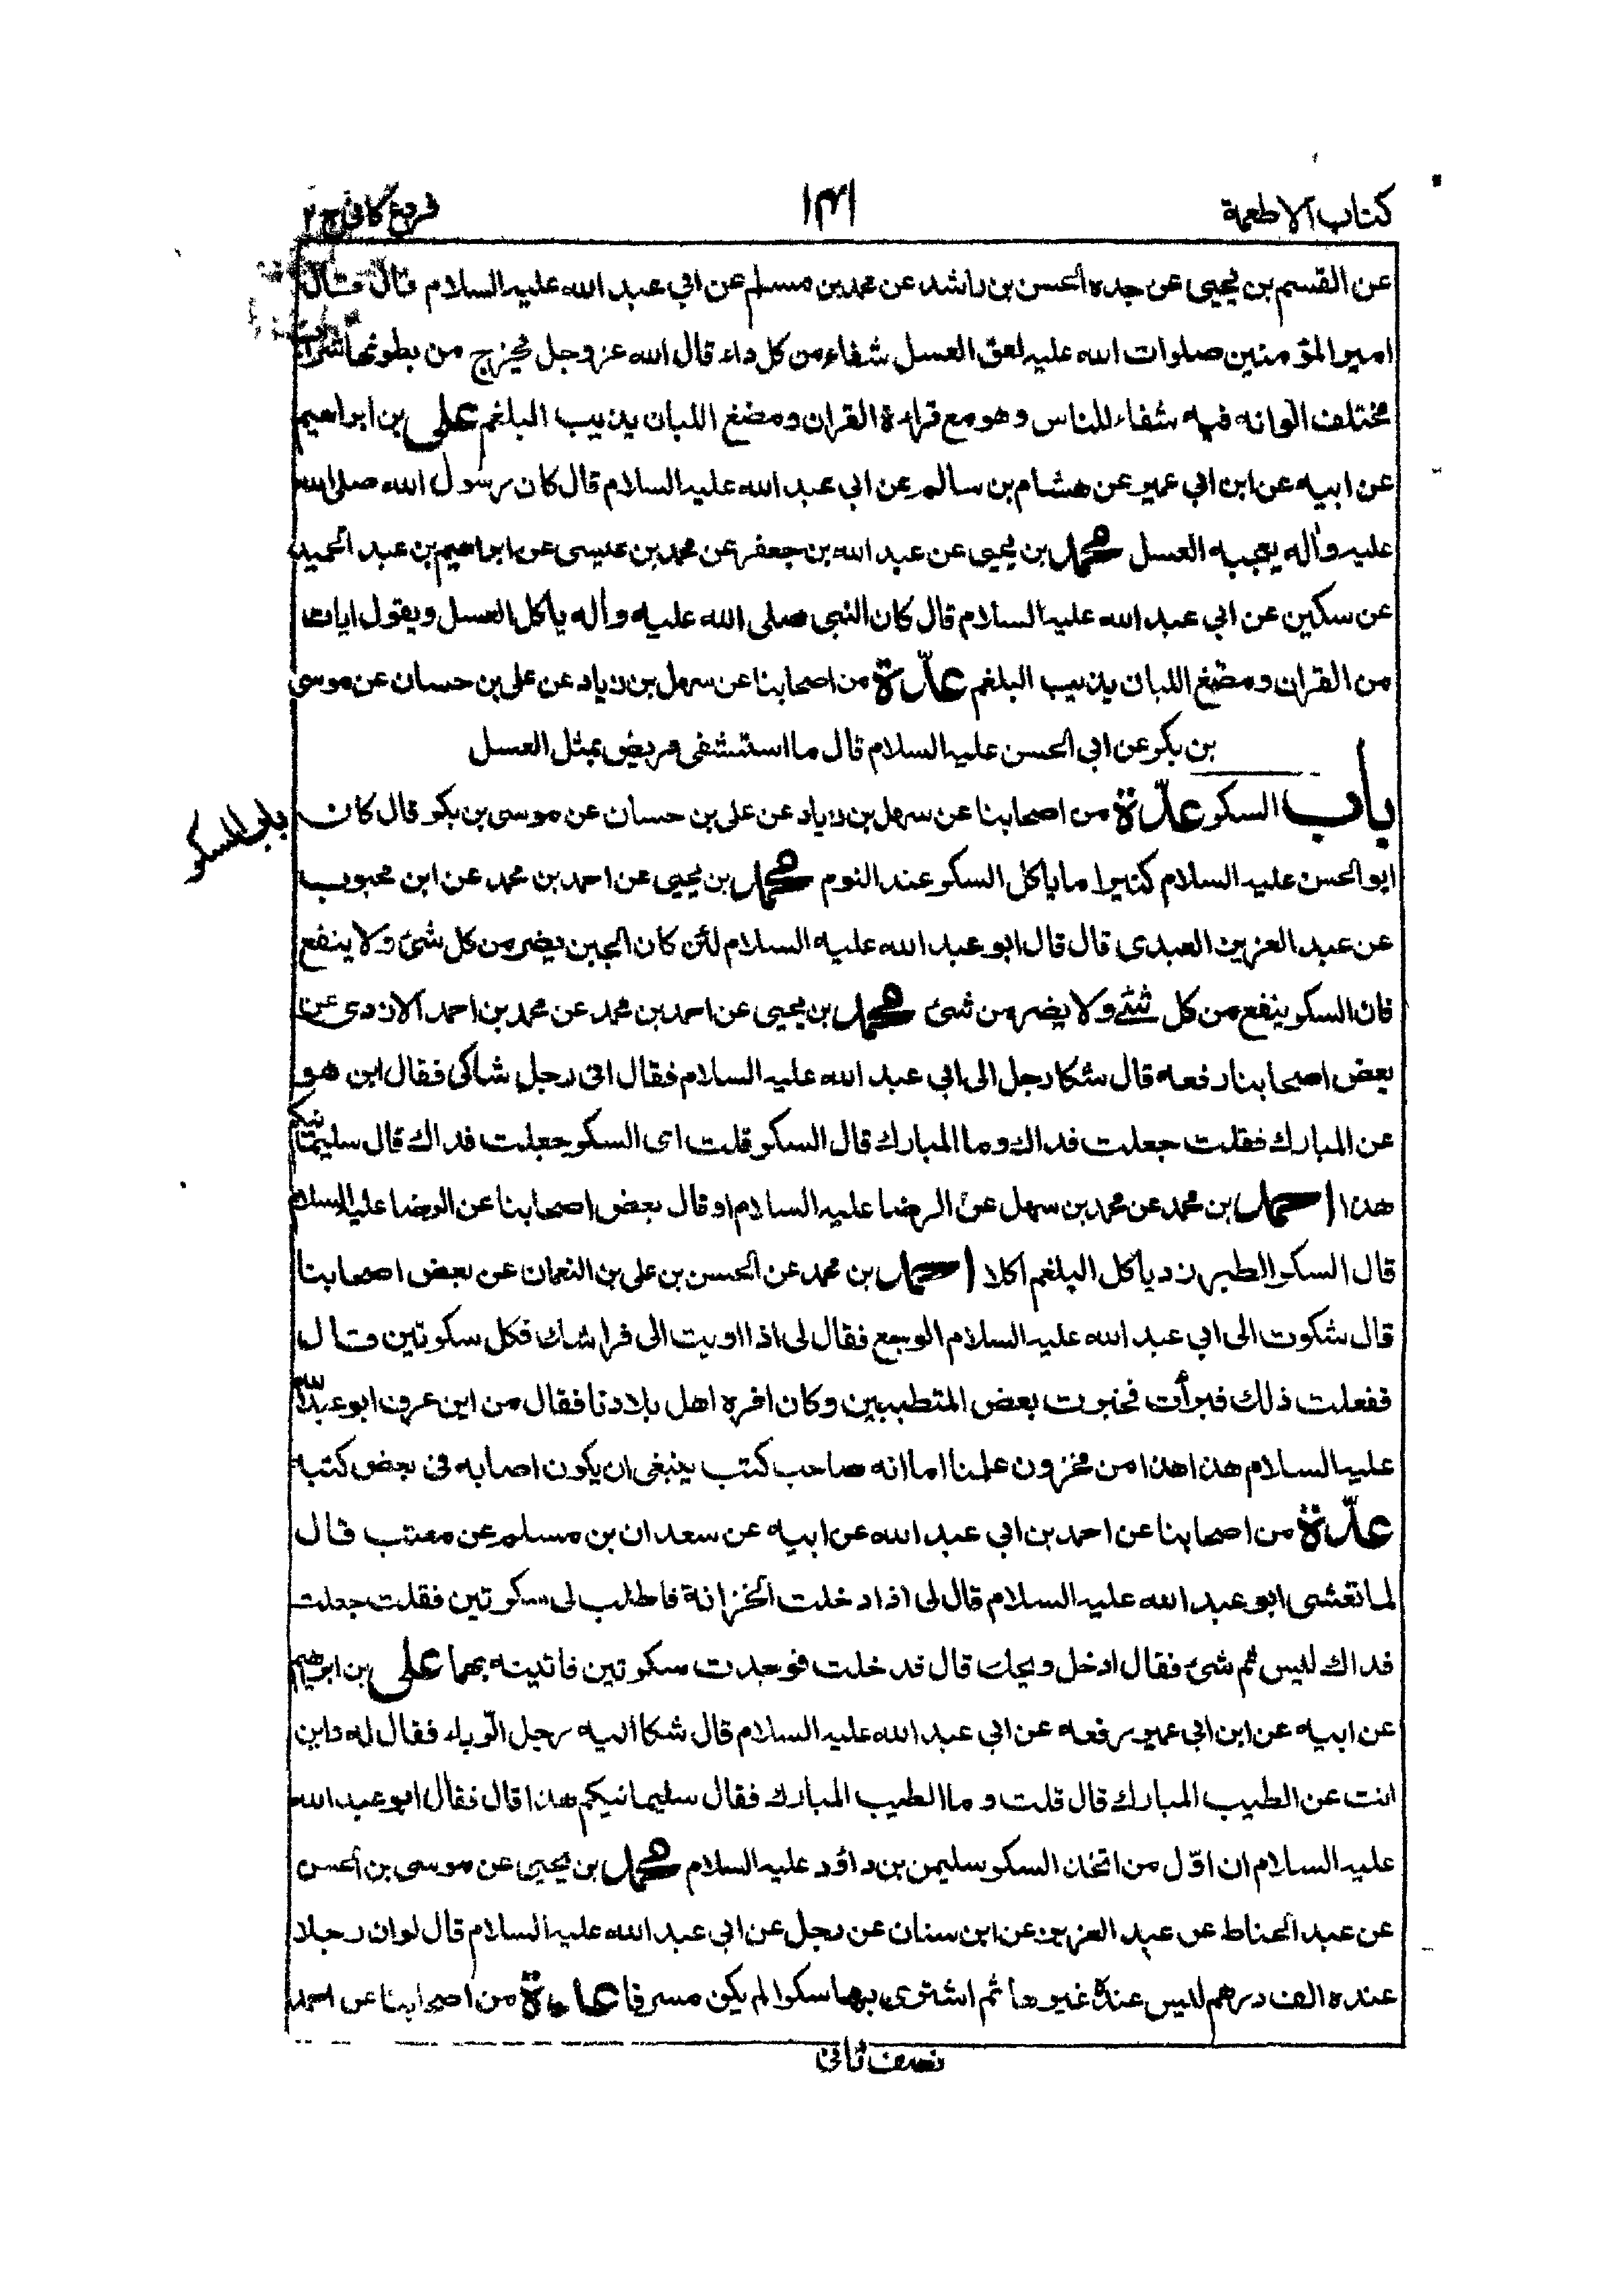 كتاب الاطعمة
١٤١
فروع كافى ج ٢
عن القسم بن يحيى عن جده الحسن بن راشد عن محمد بن مسلم عن ابي عبد الله عليه السلام قال قال
امير المؤمنين صلوات الله عليه لعق العسل شفاء من كل داء قال الله عز وجل يخرج من بطونها شراب
مختلف الوانه فيه شفاء للناس وهو مع قراءة القران ومضغ اللبان يذيب البلغم على بن ابراهيم
عن ابيه عن ابن ابي عمير عن هشام بن سالم عن ابي عبد الله عليه السلام قال كان رسول الله صلى الله
عليه واله يعجبه العسل محمد بن يحيى عن عبد الله بن جعفر عن محمد بن عيسى عن ابراهيم بن عبد الحميد
عن سكين عن ابي عبد الله عليه السلام قال كان النبى صلى الله عليه واله ياكل العسل ويقول ايات
من القران ومضغ اللبان يذيب البلغم عدّة من اصحابنا عن سهل بن زياد عن على بن حسان عن موسى
بن بكر عن ابى الحسن عليه السلام قال ما استشفى مريض بمثل العسل
باب السكر عدّة من اصحابنا عن سهل بن زياد عن على بن حسان عن موسى بن بكر قال كان
باب السكر
ابو الحسن عليه السلام كثيرا ما ياكل السكر عند النوم محمد بن يحيى عن احمد بن محمد عن ابن محبوب
عن عبد العزيز العبدى قال قال ابو عبد الله عليه السلام لئن كان الجبن يضر من كل شئ ولا ينفع
فان السكر ينفع من كل شئ ولا يضر من شئ محمد بن يحيى عن احمد بن محمد عن محمد بن احمد الازدى عن
بعض اصحابنا رفعه قال شكا رجل الى ابي عبد الله عليه السلام فقال انى رجل شاكى فقال اين هو
عن المبارك فقلت جعلت فداك وما المبارك قال السكر قلت اى السكر جعلت فداك قال سليمانيكم
هذا احمد بن محمد عن محمد بن سهل عن الرضا عليه السلام او قال بعض اصحابنا عن الرضا عليه السلام
قال السكر الطبرزد ياكل البلغم اكلا احمد بن محمد عن الحسن بن على بن النعمان عن بعض اصحابنا
قال شكوت الى ابي عبد الله عليه السلام الوجع فقال لى اذا اويت الى فراشك فكل سكرتين قال
ففعلت ذلك فبرأت فخبرت بعض المتطببين وكان افره اهل بلادنا فقال من اين عرف ابو عبد الله
عليه السلام هذا هذا من مخزون علمنا اما انه صاحب كتب ينبغى ان يكون اصابه فى بعض كتبه
عدّة من اصحابنا عن احمد بن ابي عبد الله عن ابيه عن سعدان بن مسلم عن معتب قال
لما تعشى ابو عبد الله عليه السلام قال لى اذا دخلت الخزانة فاطلب لى سكرتين فقلت جعلت
فداك ليس ثم شئ فقال ادخل ويحك قال فدخلت فوجدت سكرتين فاتيته بهما على بن ابراهيم
عن ابيه عن ابن ابي عمير رفعه عن ابي عبد الله عليه السلام قال شكا اليه رجل الوباء فقال له واين
انت عن الطيب المبارك قال قلت وما الطيب المبارك فقال سليمانيكم هذا قال فقال ابو عبد الله
عليه السلام ان اوّل من اتخذ السكر سليمن بن داؤد عليه السلام محمد بن يحيى عن موسى بن الحسن
عن عبد الحناط عن عبد العزيز عن ابن سنان عن رجل عن ابي عبد الله عليه السلام قال لو ان رجلا
عنده الف درهم ليس عنده غيرها ثم اشترى بها سكرا لم يكن مسرفا عدة من اصحابنا عن احمد
نصف ثانى